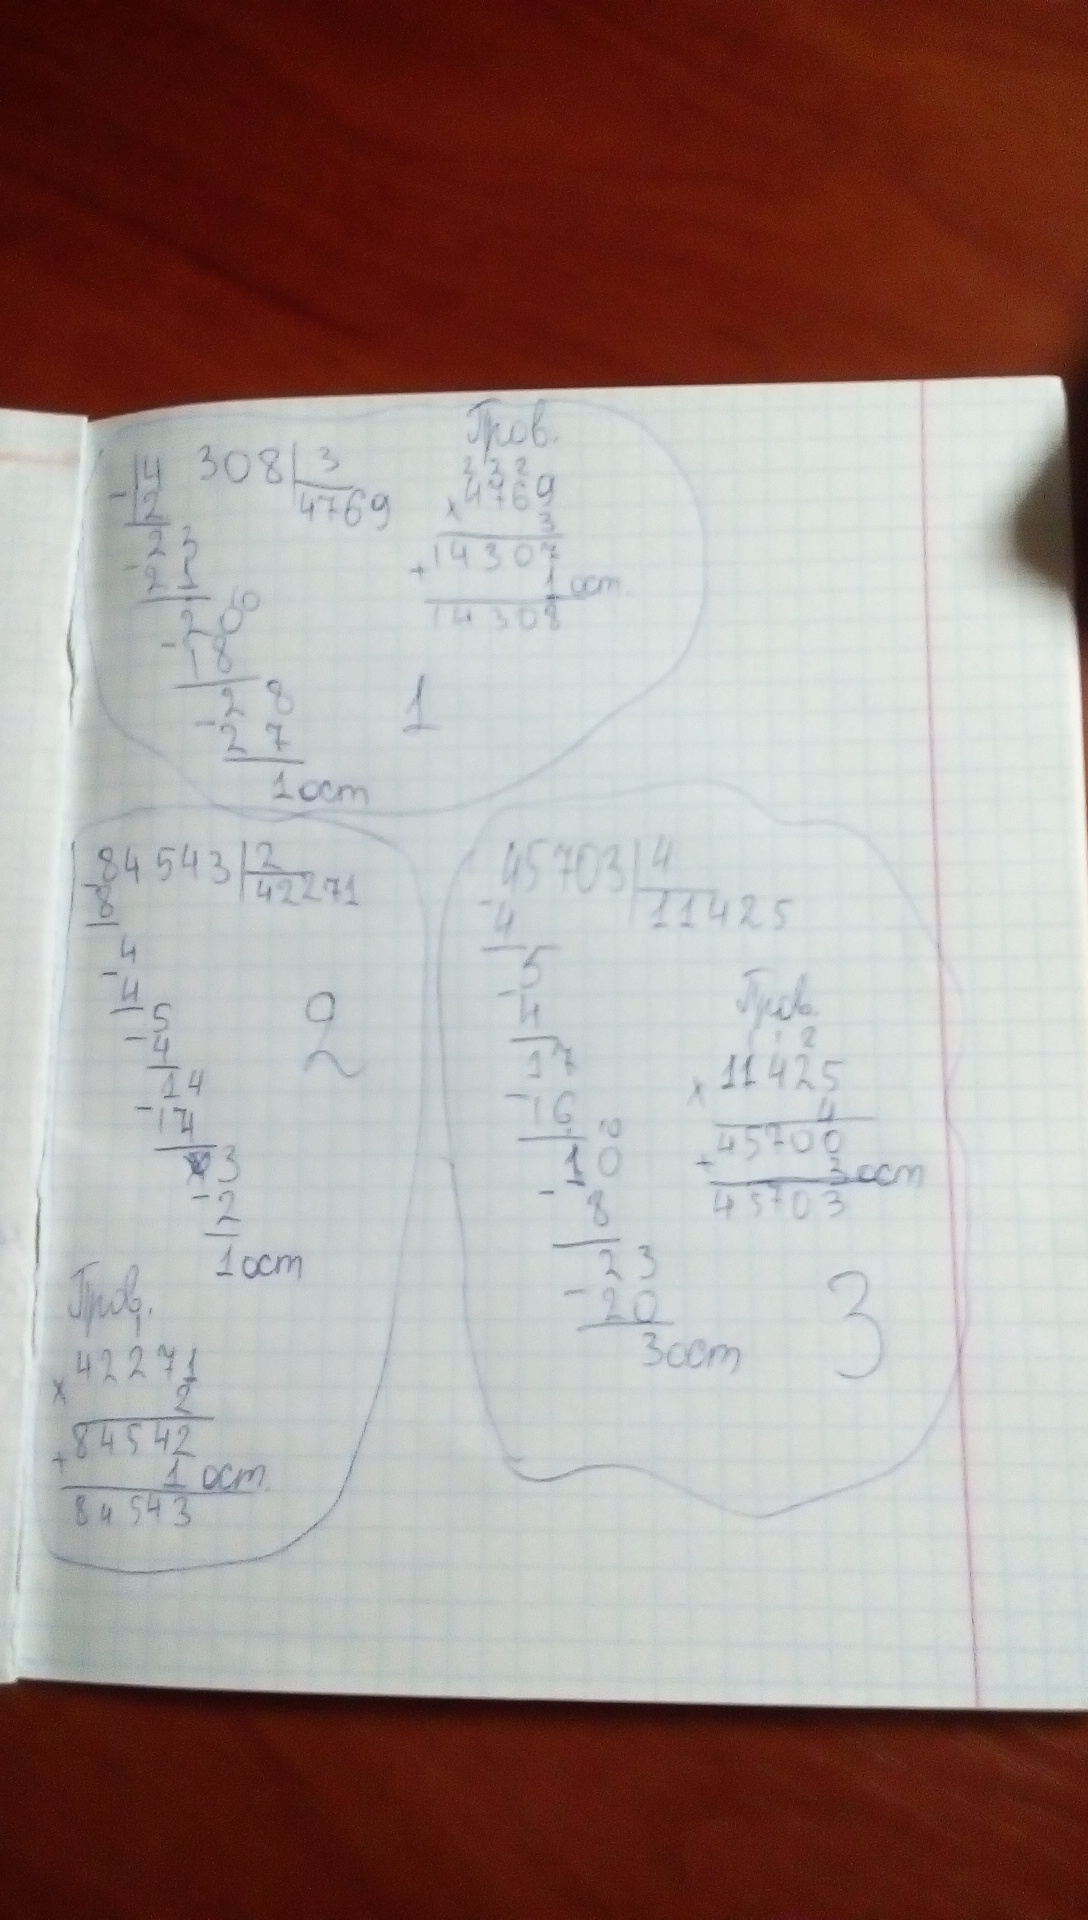 14 308 | 3
- 12 4769
23
- 21
20
- 18
28
- 27
1 ост
Пров.
2 2 2
4769
× 3
14307
+ 1 ост.
14308
1
84543 | 2
- 8 42271
4
- 4
5
- 4
14
- 14
3
- 2
1 ост
2
Пров.
1
42271
× 2
84542
+ 1 ост.
84543
45703 | 4
- 4 11425
5
- 4
17
- 16
10
10
- 8
23
- 20
3 ост
Пров.
1 1 2
11425
× 4
45700
+ 3 ост
45703
3